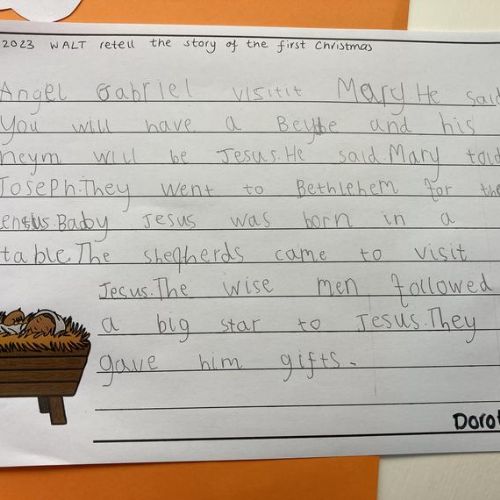 2023 WALT retell the story of the first Christmas
Angel Gabriel visitit Mary. He said
You will have a Beybe and his
neym will be Jesus. He said. Mary told
Joseph. They went to Bethlehem for the
ensus. Baby Jesus was born in a
table. The shepherds came to visit
Jesus. The wise men followed
a big star to Jesus. They
gave him gifts.
Dorot